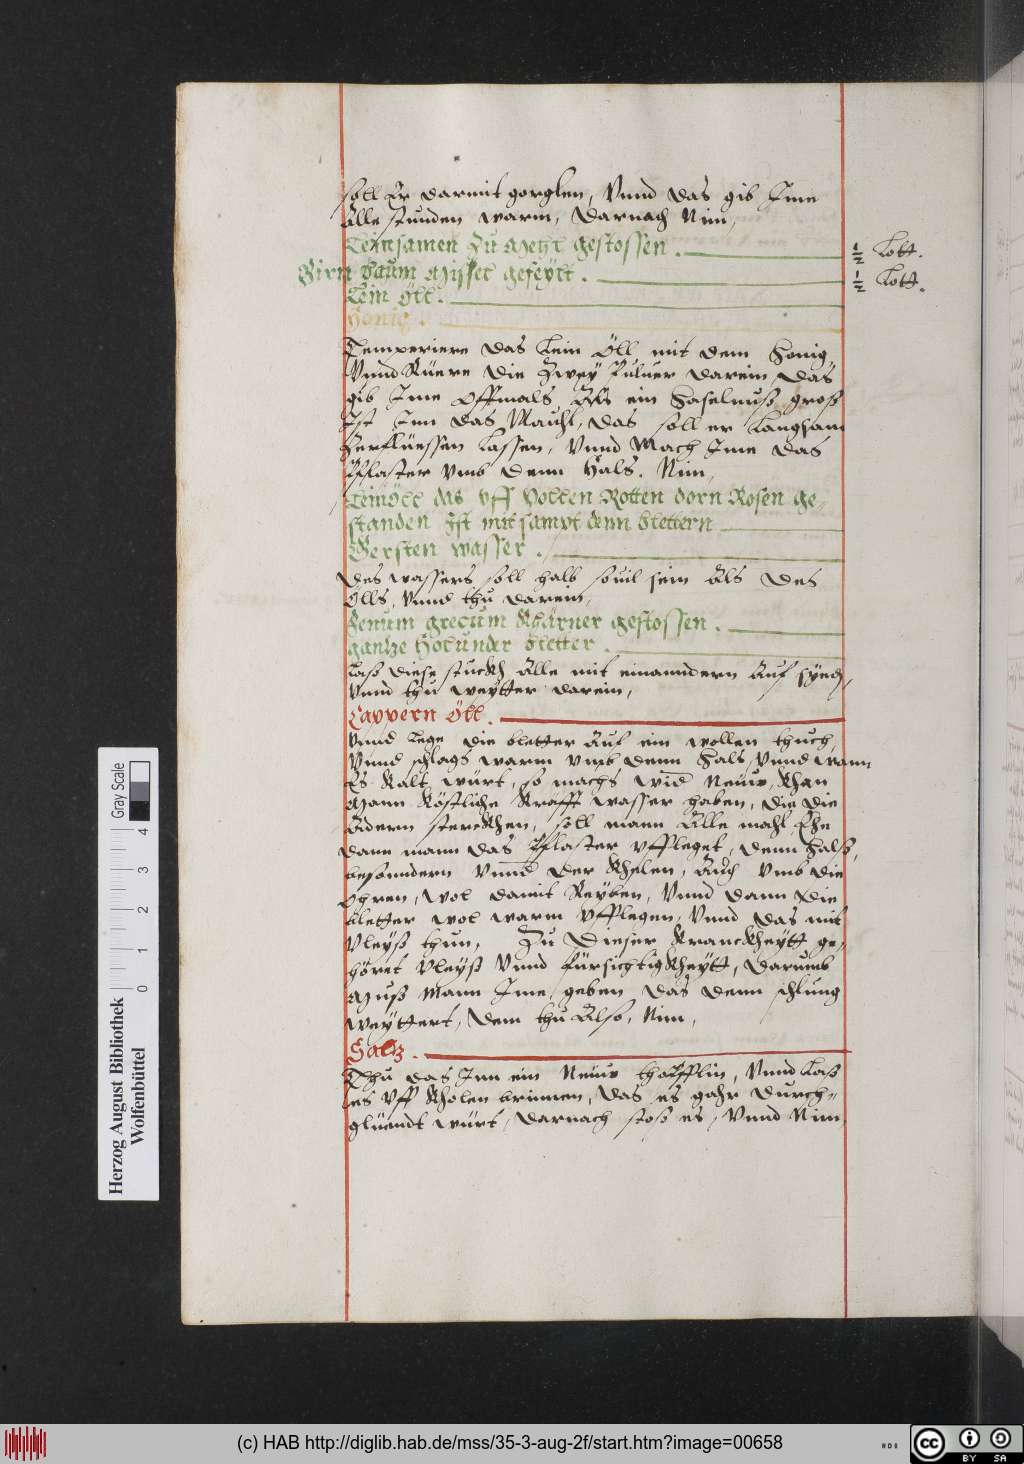 soll Er darmit gorglen, Vnnd das gib Ime
Alle stunden warm, Darnach Nim,
Leinsamen Zu Mehl gestossen. ½ Lott.
Birn baum Mystel gefeyltt. ½ Lott.
Lein Öll.
Honig.
Temperiere das Lein Öll mit dem Honig,
Vnnd Rüere die Zwey Puluer darein, Das
gib Ime Offtmals Als ein Haselnuß groß
Ist Inn das Mauhl, Das soll er Langsam
Zerflüessen Lassen, Vnnd Mach Ime das
Pflaster vmb Denn Hals. Nim,
Leinöll das vff Vollen Rotten dorn Rosen ge-
standen Ist mit sampt denn blettern
Gersten wasser.
Des wassers soll halb souil sein Als Des
Ölls, Vnnd thu darein,
Fenum grecum Khärner gestossen.
gantze Holunder bletter.
Laß diese stuckh Alle mit einanndern Auf syeden,
Vnnd thu weytter darein,
Cappern Öll.
Vnnd Lege die bletter Auf ein wollen thuch,
Vnnd schlags warm vmb denn Hals, Vnnd wann
Es Kalt würt, so machs wid Neuw, Khan
Mann Köstliche Krafft wasser haben, die die
Adern sterckhen, soll mann Alle mahl Ehe
dann mann das Pflaster vffleget, denn Halß,
besonndern Vnnd der Khelen, Auch vmb die
Ohren, wol damit Reyben, Vnnd dann Die
bletter wol warm vfflegen, Vnnd das mit
Vleyß thun, Zu Dieser Kranckheytt ge-
höret Vleyß Vnnd fürsichtigkheytt, Darumb
Muß Mann Ime geben das denn schlung
weyttert, Dem thu Also, Nim,
Saltz.
Thu das Inn ein Neuw thöpfflin, Vnnd Laß
es vff Kholen brinnen, Das es gahr Durch-
glüendt würt, Darnach stoß es, Vnnd Nim,
Herzog August Bibliothek
Wolfenbüttel
Gray Scale
0 1 2 3 4
(c) HAB http://diglib.hab.de/mss/35-3-aug-2f/start.htm?image=00658
cc BY SA